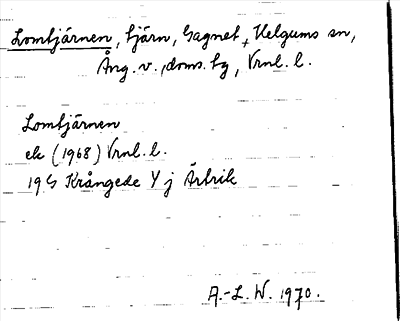 Lomtjärnen, tjärn, Gagnet, Helgums sn,
Ång. v., doms. tg, Vrnl. l.
Lomtjärnen
ek (1968) Vrnl. l.
19G Krångede Y j Ärtrik
A.-L. W. 1970.